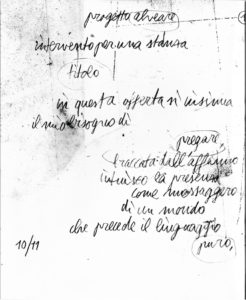 progetto alveare
intervento per una stanza
titolo
in questa offerta si insinua
il mio bisogno di
pregare,
braccata dall'affanno
intuisco la presenza
come messaggero
di un mondo
che precede il linguaggio
puro,
10/11